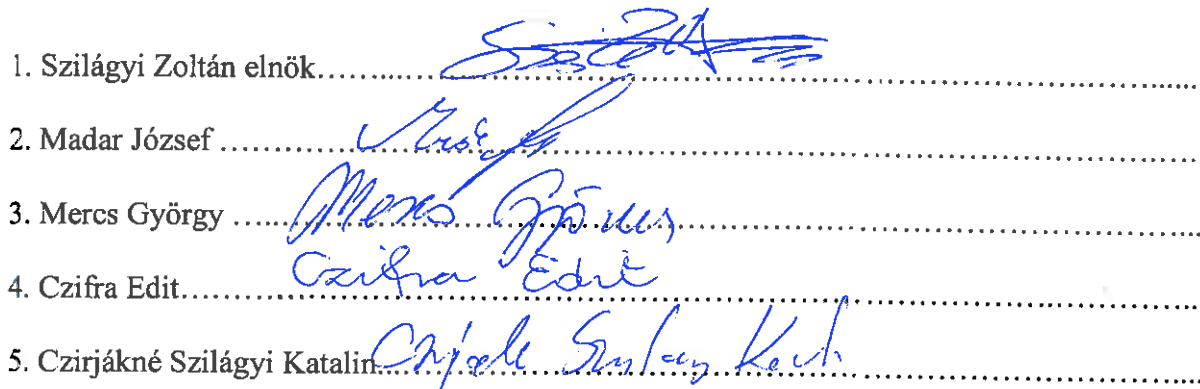 1. Szilágyi Zoltán elnök
2. Madar József
3. Mercs György Mercs György
4. Czifra Edit Czifra Edit
5. Czirjákné Szilágyi Katalin